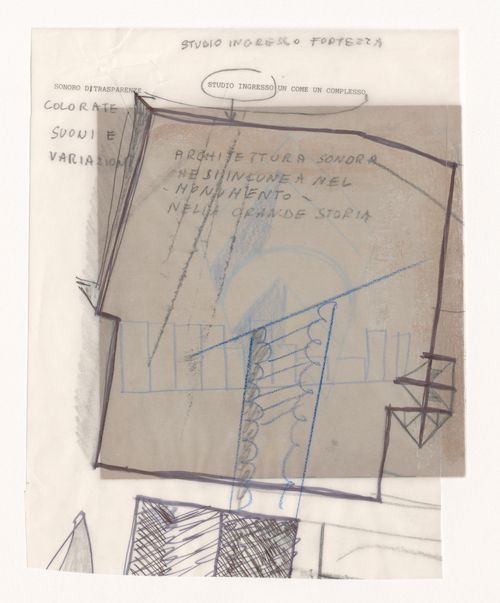 STUDIO INGRESSO FORTEZZA
SONORO DITRASPARENZE STUDIO INGRESSO UN COME UN COMPLESSO
COLORATE
SUONI E
VARIAZIONI
ARCHITETTURA SONORA
CHE SI INCUNEA NEL
MONUMENTO
NELLA GRANDE STORIA